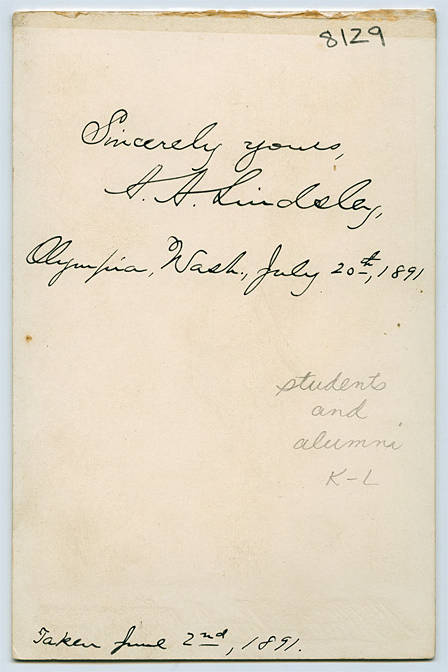 8129
Sincerely yours,
A. A. Lindsley,
Olympia, Wash., July 20th, 1891
students
and
alumni
K-L
Taken June 2nd, 1891.